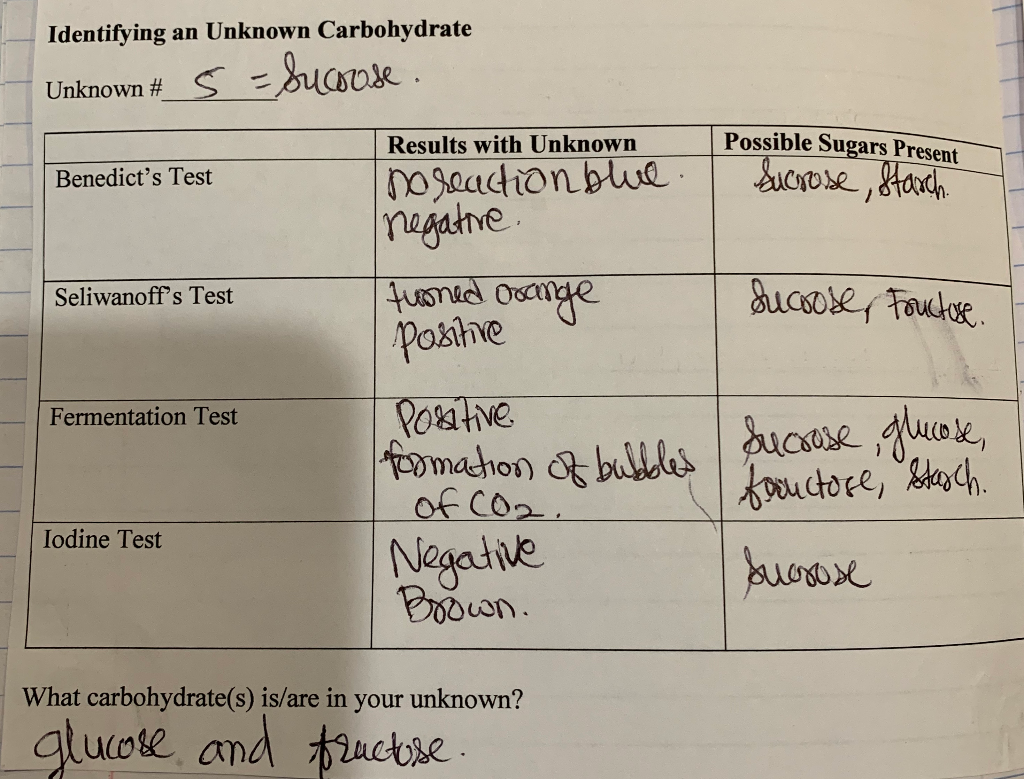 Identifying an Unknown Carbohydrate
Unknown # 5 = Sucrose.
Results with Unknown
Possible Sugars Present
Benedict's Test
no reaction blue.
negative.
Sucrose, Starch.
Seliwanoff's Test
turned orange
Positive
Sucrose, Fructose.
Fermentation Test
Positive
formation of bubbles
of CO2.
Sucrose, glucose,
fructose, Starch.
Iodine Test
Negative
Brown.
Sucrose
What carbohydrate(s) is/are in your unknown?
glucose and fructose.